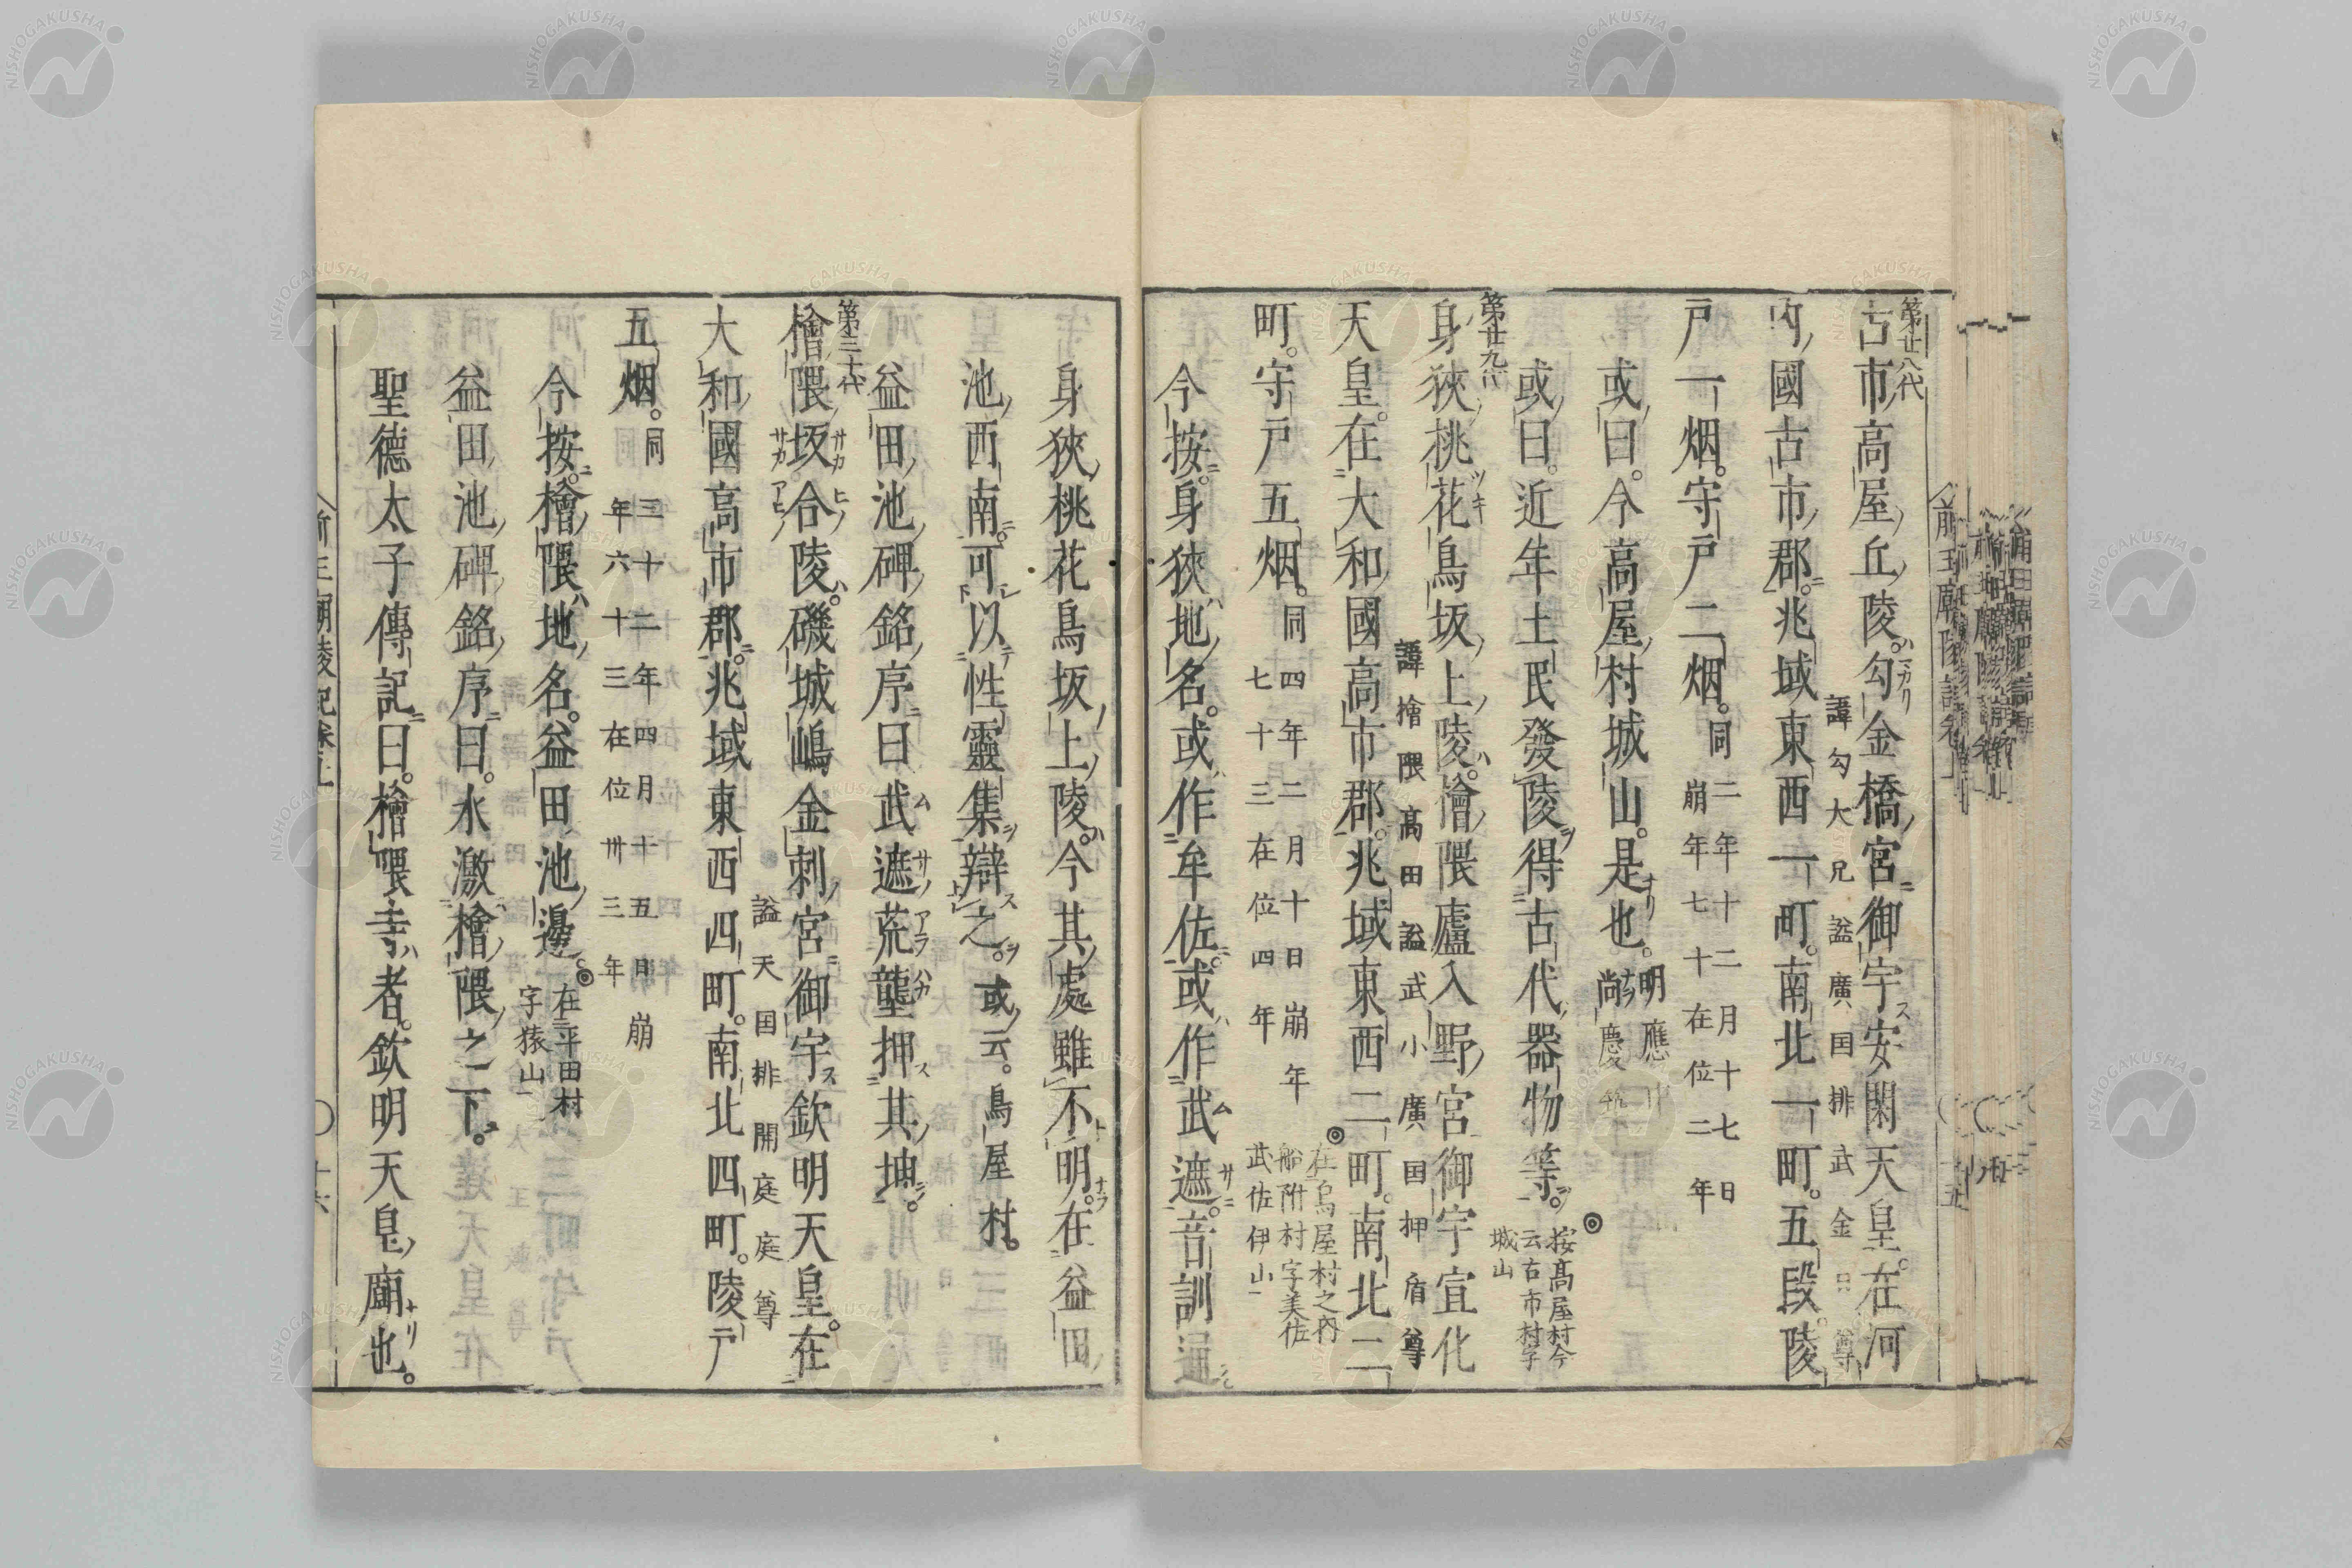 第廿八代
古市高屋丘陵。勾金橋宮御宇安閑天皇。在河
諱勾大兄謚廣国排武金日尊
内國古市郡。兆域東西一町。南北一町。五段。陵
戸一烟。守戸二烟。同二年十二月十七日
崩年七十在位二年
或曰。今高屋村城山。是也。明應
尚慶
或曰。近年土民發陵得古代器物等。◎按高屋村今
云古市村字
城山
第廿九代
身狹桃花鳥坂上陵。檜隈廬入野宮御宇宣化
諱檜隈高田謚武小廣国押盾尊
天皇。在大和國高市郡。兆域東西二町。南北二
町。守戸五烟。同四年二月十日崩年
七十三在位四年
◎在鳥屋村之内
船附村字美佐
武佐伊山
今按。身狹地名。或作牟佐。或作武遮。音訓通
身狹桃花鳥坂上陵。今其處雖不明。在益田
池西南。可以性靈集辯之。或云。鳥屋村。
益田池碑銘序曰武遮荒壟押其坤。
第三十代
檜隈坂合陵。磯城嶋金刺宮御宇欽明天皇。在
謚天国排開庭庭尊
大和國高市郡。兆域東西四町。南北四町。陵戸
五烟。同三十二年四月十五日崩
年六十三在位卅三年
今按。檜隈地名。益田池邊。◎在平田村
字猿山
益田池碑銘序曰。水激檜隈之下。
聖德太子傳記曰。檜喂寺者。欽明天皇廟也。